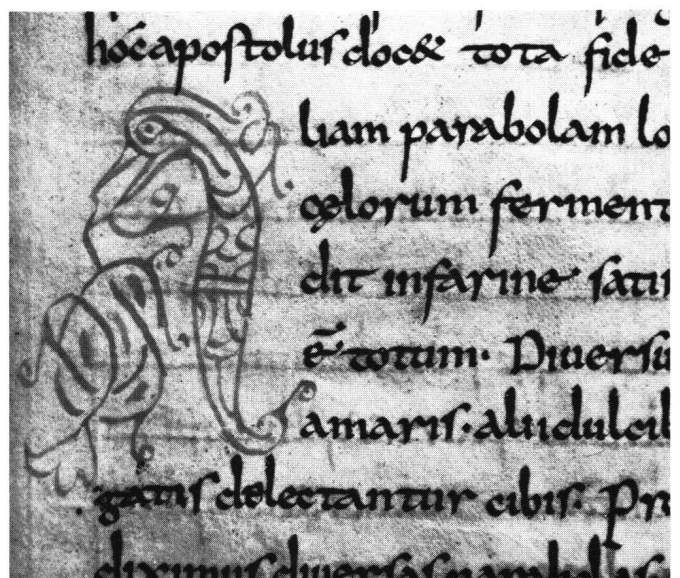 hoc apostolus doc& tota fide
A liam parabolam lo
cęlorum ferment
dit in farine satis
ē totum. Diuersi
amaris. alii dulcib
gatis delectantur cibis. Pr
diximus diuersas parabolas